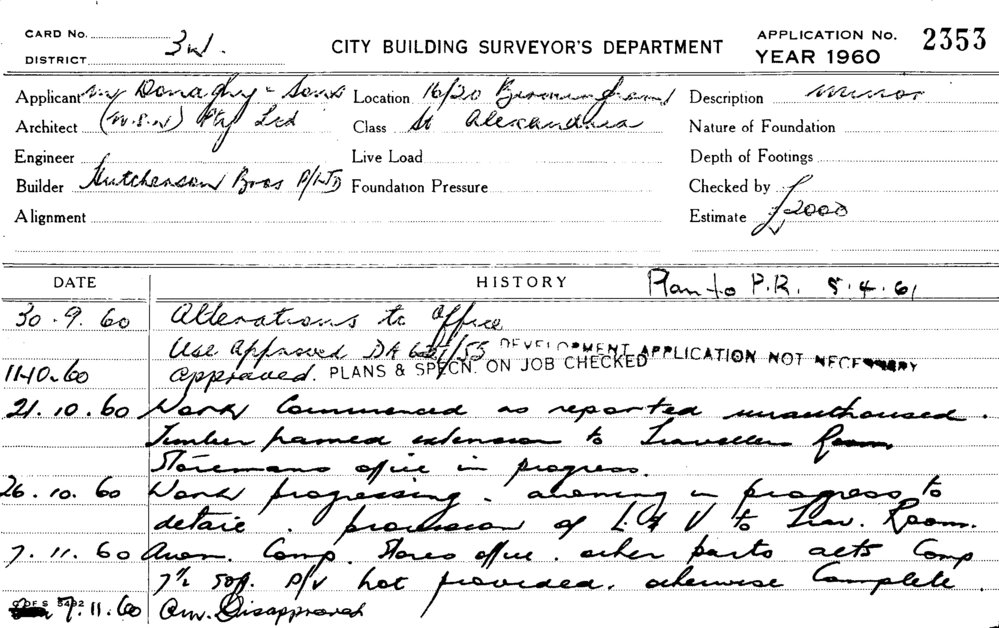 CARD No.
DISTRICT 3rd.
CITY BUILDING SURVEYOR'S DEPARTMENT
APPLICATION No. 2353
YEAR 1960
Applicant Donaghy & Sons
Location 16/20 Birmingham
Description Minor
Architect (N.S.W) Pty Ltd
Class St Alexandria
Nature of Foundation
Engineer
Live Load
Depth of Footings
Builder Hutcherson Bros P/LTD
Foundation Pressure
Checked by
Alignment
Estimate £2000
DATE HISTORY Plan to P.R. 5.4.61
30.9.60 Alterations to office
Use approved DA /55 DEVELOPMENT APPLICATION NOT NECESSARY
11.10.60 approved. PLANS & SPECN. ON JOB CHECKED
21.10.60 Work Commenced as reported unauthorised.
Timber framed extension to Travellers Room
Storemans office in progress.
26.10.60 Work progressing. awning in progress to
detail. provision of L & V to Trav. Room.
7.11.60 Awn. Comp. Stores office. other parts alts Comp
7½ P/V not provided. otherwise Complete
7.11.60 Disapproved